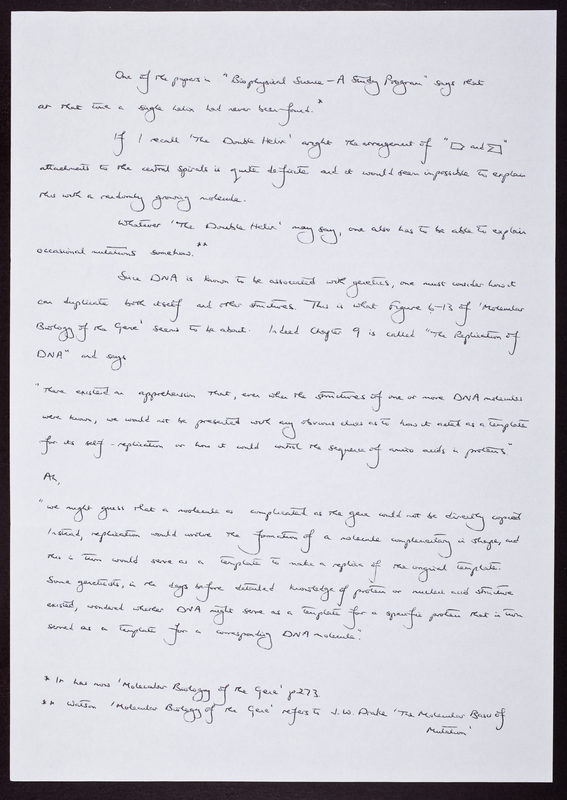 One of the papers in "Biophysical Science – A Study Program" says that
at that time a single helix had never been found.*
If I recall 'The Double Helix' aright the arrangement of "⬠ and ⬡"
attachments to the central spirals is quite definite and it would seem impossible to explain
this with a randomly growing molecule.
Whatever 'The Double Helix' may say, one also has to be able to explain
occasional mutations somehow.**
Since DNA is known to be associated with genetics, one must consider how it
can duplicate both itself and other structures. This is what figure 6-13 of 'Molecular
Biology of the Gene' seems to be about. Indeed Chapter 9 is called "The Replication of
DNA" and says
"There existed an apprehension that, even when the structures of one or more DNA molecules
were known, we would not be presented with any obvious clues as to how it acted as a template
for its self-replication or how it could control the sequence of amino acids in proteins"
Ah,
"we might guess that a molecule as complicated as the gene could not be directly copied
Instead, replication would involve the formation of a molecule complementary in shape, and
this in turn would serve as a template to make a replica of the original template.
Some geneticists, in the days before detailed knowledge of protein or nucleic acid structure
existed, wondered whether DNA might serve as a template for a specific protein that in turn
served as a template for a corresponding DNA molecule".
* It has now 'Molecular Biology of the Gene' p273
** Watson 'Molecular Biology of the Gene' refers to J.W. Drake 'The Molecular Basis of
Mutation'